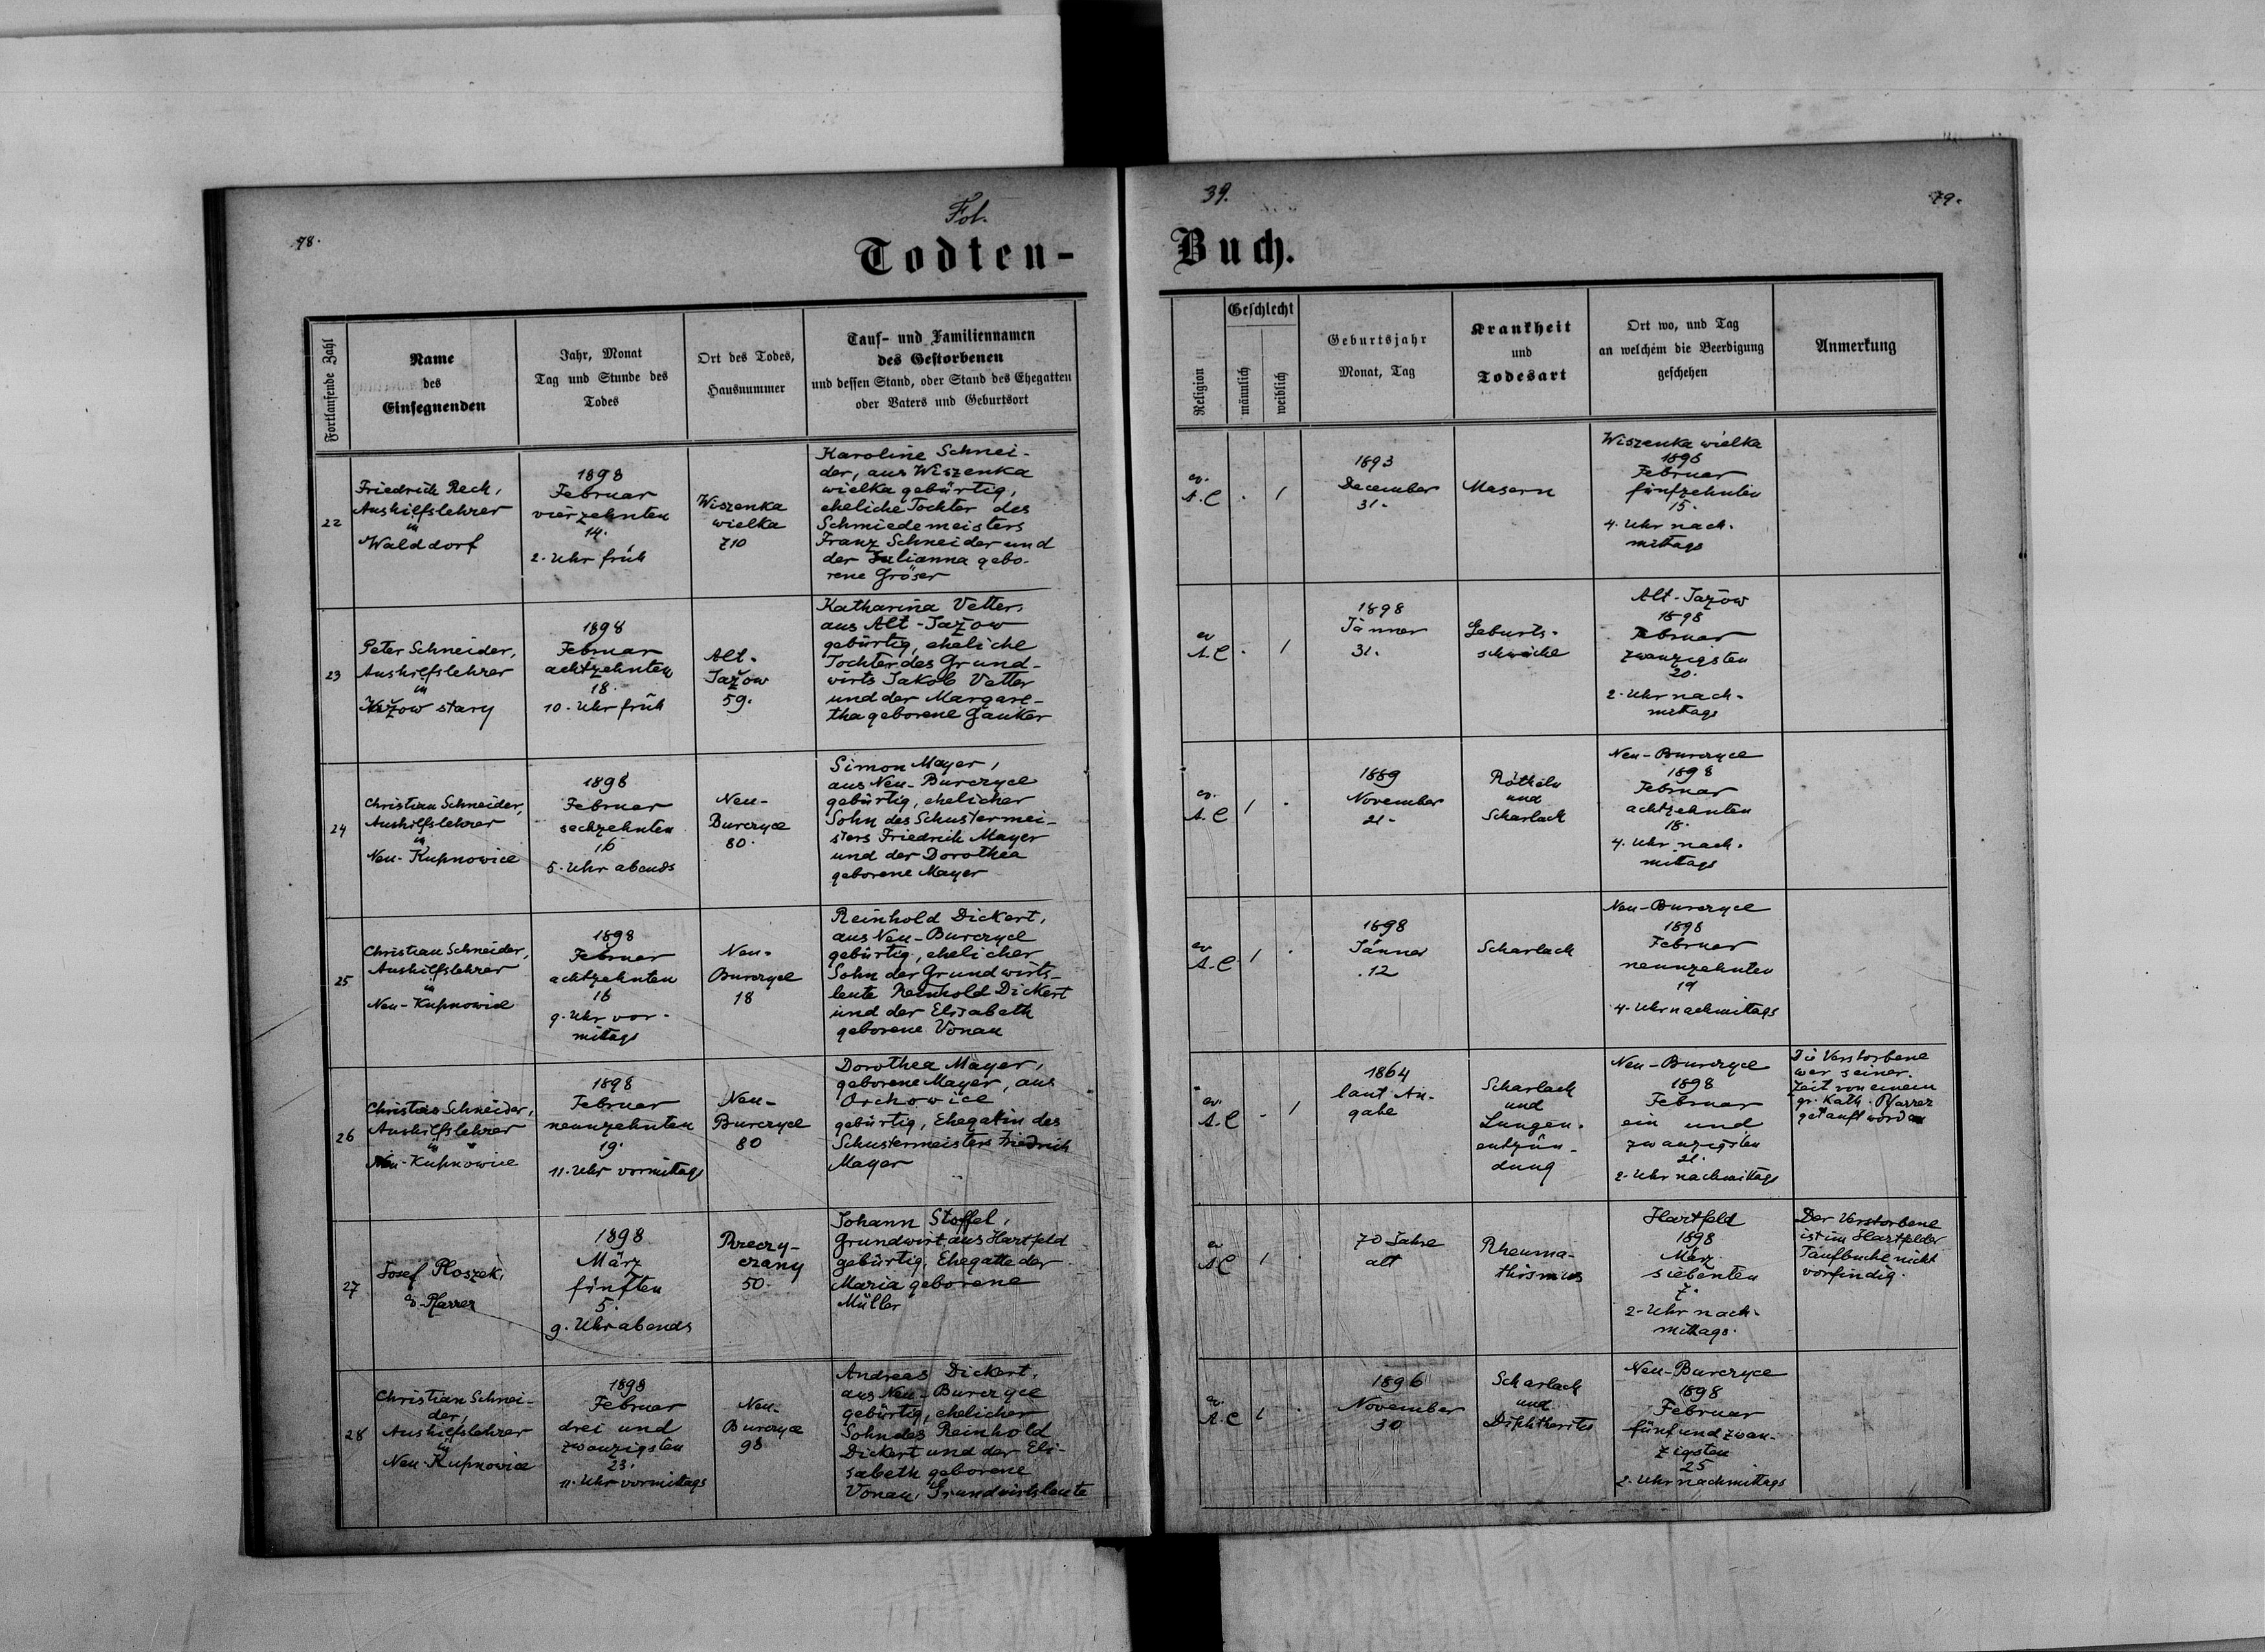 78.
Fol.
39.
79.
Todten-
Buch.
Fortlaufende Zahl
Name
des
Einsegnenden
Jahr, Monat
Tag und Stunde des
Todes
Ort des Todes,
Hausnummer
Tauf- und Familiennamen
des Gestorbenen
und dessen Stand, oder Stand des Ehegatten
oder Vaters und Geburtsort
Religion
Geschlecht
männlich
weiblich
Geburtsjahr
Monat, Tag
Krankheit
und
Todesart
Ort wo, und Tag
an welchem die Beerdigung
geschehen
Anmerkung
22
Friedrich Rech,
Aushilfslehrer
in
Walddorf
1898
Februar
vierzehnten
14.
2. Uhr früh
Wiszenka
wielka
710
Karoline Schnei-
der, aus Wiszenka
wielka gebürtig,
eheliche Tochter des
Schmiedemeisters
Franz Schneider und
der Julianna gebo-
rene Gröser
ev.
A. C
. 1
1893
December
31.
Masern
Wiszenka wielka
1898
Februar
fünfzehnten
15.
4. Uhr nach-
mittags
23
Peter Schneider,
Aushilfslehrer
in
Jažow stary
1898
Februar
achtzehnten
18.
10. Uhr früh
Alt-
Jažow
59.
Katharina Vetter,
aus Alt-Jažow
gebürtig, eheliche
Tochter des Grund-
wirts Jakob Vetter
und der Margare-
tha geborene Ganker
ev
A. C
. 1
1898
Jänner
31.
Geburts-
schwäche
Alt-Jažow
1898
Februar
zwanzigsten
20.
2. Uhr nach-
mittags
24
Christian Schneider,
Aushilfslehrer
in
Neu-Kupnowice
1898
Februar
sechzehnten
16
5. Uhr abends
Neu-
Burczyce
80.
Simon Mayer,
aus Neu-Burczyce
gebürtig, ehelicher
Sohn des Schustermei-
sters Friedrich Mayer
und der Dorothea
geborene Mayer
ev.
A. C
1 .
1889
November
21.
Rötheln
und
Scharlach
Neu-Burczyce
1898
Februar
achtzehnten
18.
4. Uhr nach-
mittags
25
Christian Schneider,
Aushilfslehrer
in
Neu-Kupnowice
1898
Februar
achtzehnten
16
9. Uhr vor-
mittags
Neu-
Burczyce
18
Reinhold Dickert,
aus Neu-Burczyce
gebürtig, ehelicher
Sohn der Grundwirts-
leute Reinhold Dickert
und der Elisabeth
geborene Vonau
ev.
A. C
1 .
1898
Jänner
12
Scharlach
Neu-Burczyce
1898
Februar
neunzehnten
19
4. Uhr nachmittags
26
Christian Schneider,
Aushilfslehrer
in
Neu-Kupnowice
1898
Februar
neunzehnten
19.
11. Uhr vormittags
Neu-
Burczyce
80
Dorothea Mayer,
geborene Mayer, aus
Orchowice
gebürtig, Ehegatin des
Schustermeisters Friedrich
Mayer
ev.
A. C
- 1
1864
laut An-
gabe
Scharlach
und
Lungen-
entzün-
dung
Neu-Burczyce
1898
Februar
ein und
zwanzigsten
21.
2. Uhr nachmittags
Die Verstorbene
war seiner-
zeit von einem
gr. kath. Pfarrer
getauft worden
27
Josef Ploszek,
ev. Pfarrer
1898
März
fünften
5.
9. Uhr abends
Przeczy-
czany
50.
Johann Stoffel,
Grundwirt aus Hartfeld
gebürtig, Ehegatte der
Maria geborene
Müller
ev
A. C
1 .
70 Jahre
alt
Rheuma-
thismus
Hartfeld
1898
März
siebenten
7.
2. Uhr nach-
mittags.
Der Verstorbene
ist im Hartfelder
Taufbuche nicht
vorfindig.
28
Christian Schnei-
der,
Aushilfslehrer
in
Neu-Kupnowice
1898
Februar
drei und
zwanzigsten
23.
11. Uhr vormittags
Neu-
Burczyce
98
Andreas Dickert,
aus Neu-Burczyce
gebürtig, ehelicher
Sohn des Reinhold
Dickert und der Eli-
sabeth geborene
Vonau, Grundwirtsleute
ev.
A. C
1 .
1896
November
30
Scharlach
und
Diphtherites
Neu-Burczyce
1898
Februar
fünf und zwan-
zigsten
25
2. Uhr nachmittags